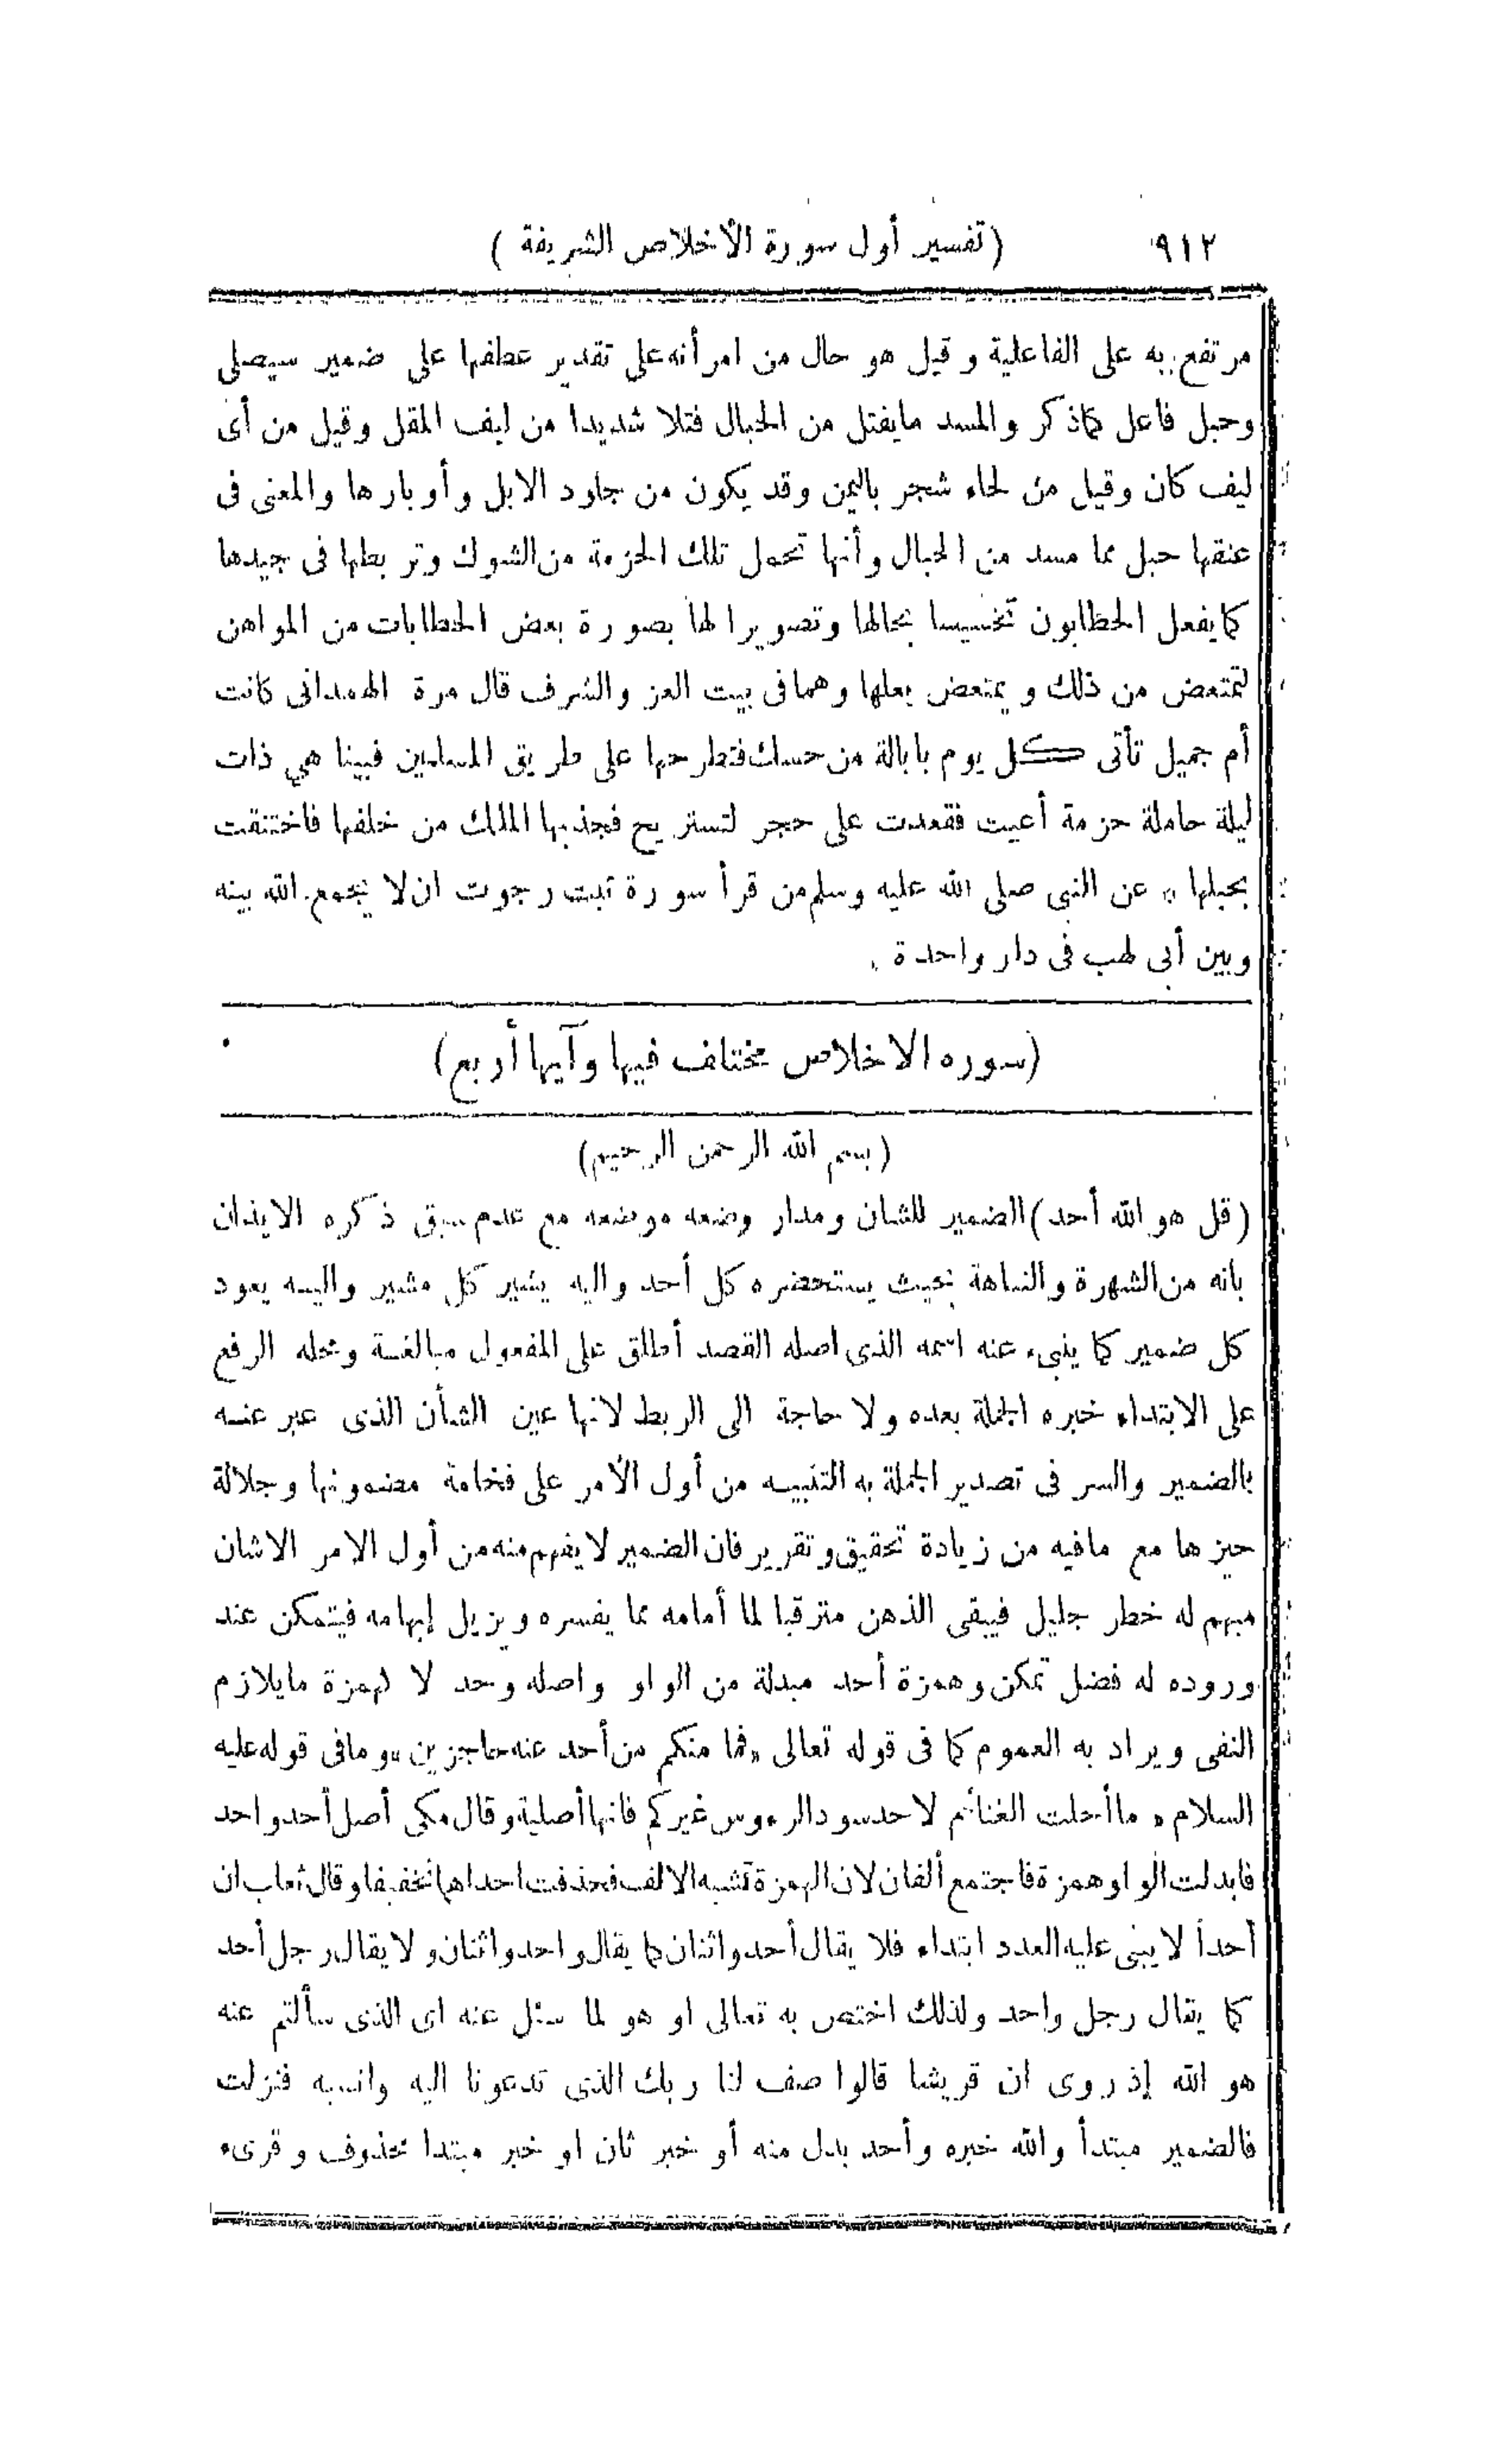 ٩١٢ (تفسير أول سورة الأخلاص الشريفة)
مرتفع به على الفاعلية وقيل هو حال من امرأته على تقدير عطفها على ضمير سيصلى
وحبل فاعل كماذكر والمسد مايفتل من الحبال فتلا شديدا من ليف المقل وقيل من أى
ليف كان وقيل من لحاء شجر باليمن وقد يكون من جلود الابل وأوبارها والمعنى فى
عنقها حبل مما مسد من الحبال وأنها تحمل تلك الحزمة من الشوك وتربطها فى جيدها
كمايفعل الحطابون تخسيسا بحالها وتصويرا لها بصورة بعض الحطابات من المواهن
لتمتعض من ذلك ويمتعض بعلها وهما فى بيت العز والشرف قال مرة الهمدانى كانت
أم جميل تأتى كل يوم بابالة من حسك فتطرحها على طريق المسلمين فبينا هى ذات
ليلة حاملة حزمة أعيت فقعدت على حجر لتستريح فجذبها الملك من خلفها فاختنقت
بحبلها ، عن النبى صلى الله عليه وسلم من قرأ سورة تبت رجوت ان لا يجمع الله بينه
وبين أبى لهب فى دار واحدة .
(سوره الاخلاص مختلف فيها وآيها أربع)
(بسم الله الرحمن الرحيم)
(قل هو الله أحد) الضمير للشان ومدار وضعه موضعه مع عدم سبق ذكره الايذان
بانه من الشهرة والنباهة بحيث يستحضره كل أحد واليه يشير كل مشير واليه يعود
كل ضمير كما ينبىء عنه اسمه الذى اصله القصد أطلق على المفعول مبالغة ومحله الرفع
على الابتداء خبره الجملة بعده ولا حاجة الى الربط لانها عين الشأن الذى عبر عنه
بالضمير والسر فى تصدير الجملة به التنبيه من أول الأمر على فخامة مضمونها وجلالة
حيزها مع مافيه من زيادة تحقيق وتقرير فان الضمير لا يفهم منه من أول الامر الاشان
مبهم له خطر جليل فيبقى الذهن مترقبا لما أمامه مما يفسره ويزيل إبهامه فيتمكن عند
وروده له فضل تمكن وهمزة أحد مبدلة من الواو واصله وحد لا كهمزة مايلازم
النفى ويراد به العموم كما فى قوله تعالى «فما منكم من أحد عنه حاجزين» وما فى قوله عليه
السلام « ما أحلت الغنائم لاحد سود الرءوس غيركم فانها أصلية وقال مكى أصل أحد واحد
فابدلت الواو همزة فاجتمع ألفان لان الهمزة تشبه الالف فحذفت احداهما تخفيفا وقال ثعلب ان
أحدا لايبنى عليه العدد ابتداء فلا يقال أحد واثنان كما يقال واحد واثنان ولا يقال رجل أحد
كما يقال رجل واحد ولذلك اختص به تعالى او هو لما سئل عنه اى الذى سألتم عنه
هو الله إذ روى ان قريشا قالوا صف لنا ربك الذى تدعونا اليه وانسبه فنزلت
فالضمير مبتدأ والله خبره وأحد بدل منه أو خبر ثان او خبر مبتدا محذوف وقرىء